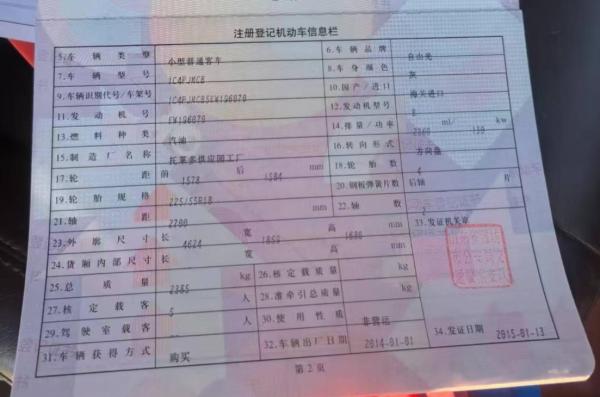 注册登记机动车信息栏
5.车辆类型 小型普通客车 6.车辆品牌 自由光
7.车辆型号 1C4PJMCB 8.车身颜色 灰
9.车辆识别代号/车架号 1C4PJMCB5EW196070 10.国产/进口 海关进口
11.发动机号 EW196070 12.发动机型号
13.燃料种类 汽油 14.排量/功率 2360 ml/ kw
15.制造厂名称 16.转向形式 方向盘
17.轮距 前 1578 后 1584 mm 18.轮胎数 4
19.轮胎规格 225/55R18 20.钢板弹簧片数 后轴 片
21.轴距 2700 mm 22.轴数 2
23.外廓尺寸 长 4624 宽 1859 高 1680 mm 33.发证机关章
24.货厢内部尺寸 长 宽 高 mm
25.总质量 2385 kg 26.核定载质量 kg
27.核定载客 5 人 28.准牵引总质量 kg
29.驾驶室载客 人 30.使用性质 非营运
31.车辆获得方式 购买 32.车辆出厂日期 2014-01-01 34.发证日期 2015-01-13
第2页